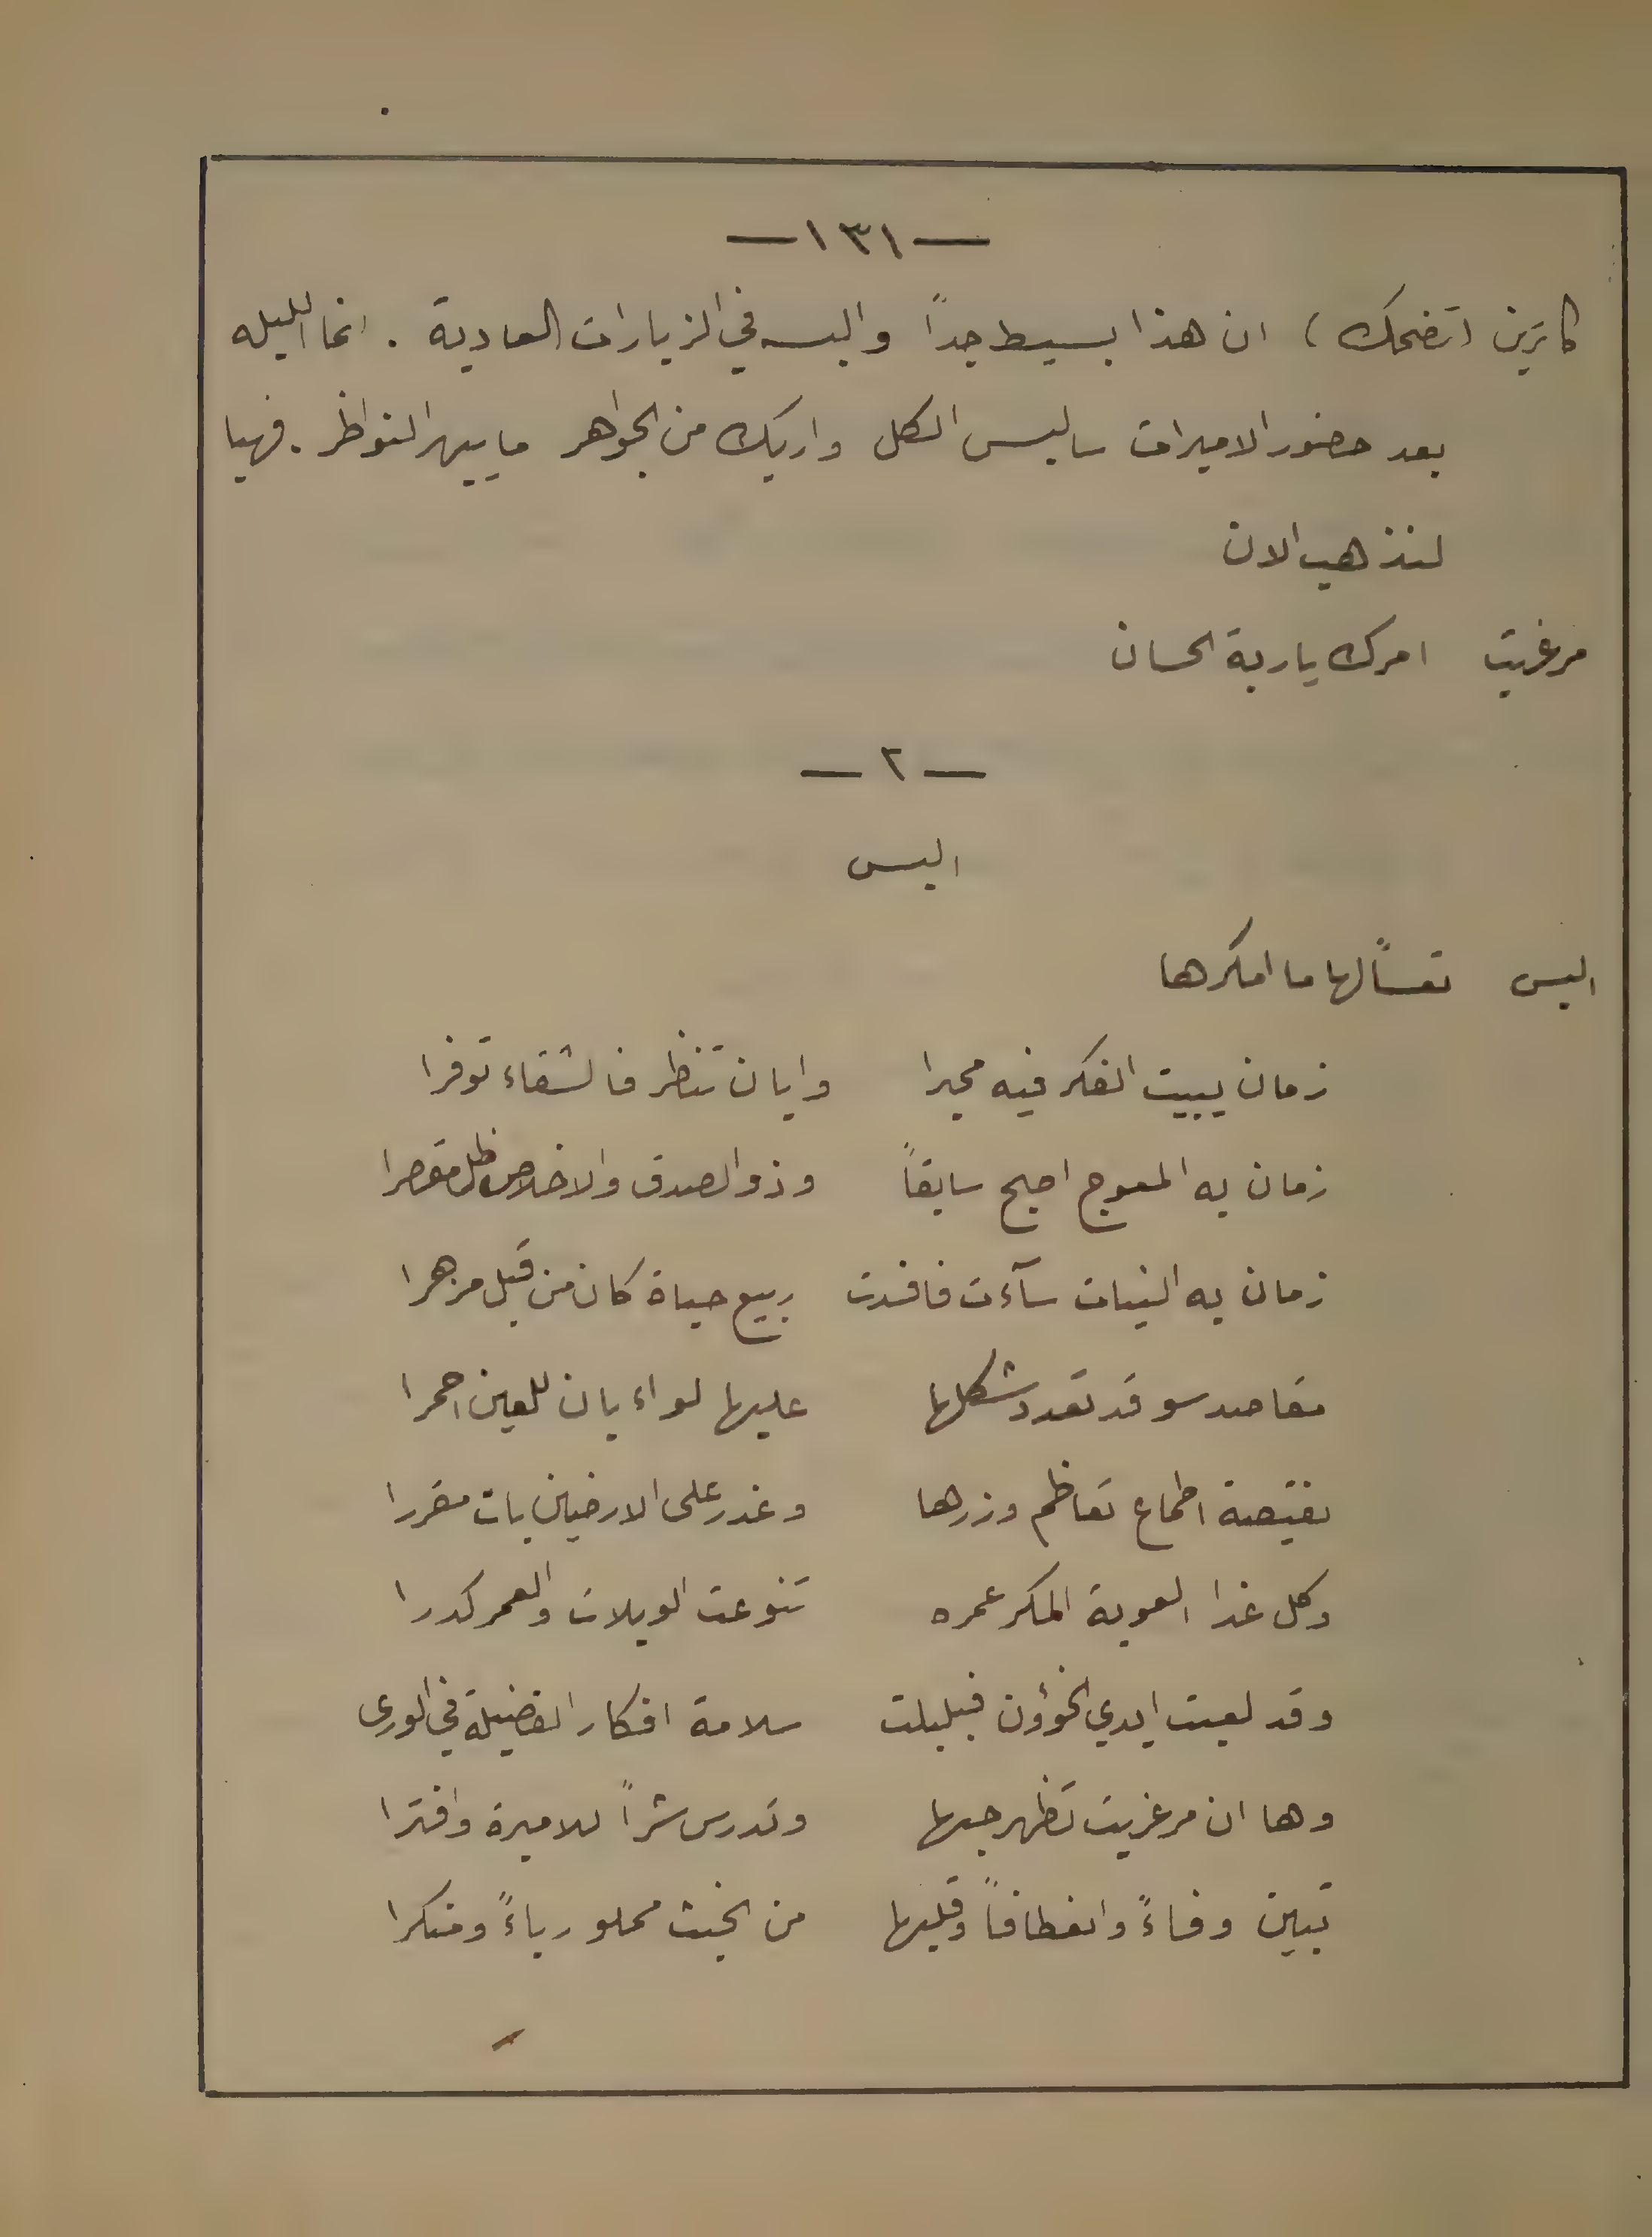 —١٣١—
كاترين (تضحك) ان هذا بسيط جداً والبسه في الزيارات العادية . انما الليله
بعد حضور الاميرات سالبس الكل واريك من الجواهر ما يبهر النواظر . فهيا
لنذهب الان
مرغريت امرك يا ربة الحسان
— ٢ —
اليس
اليس تعساً لها ما امكرها
زمان يبيت الفكر فيه محيرا وايان تنظر فالشقاء توفرا
زمان به المعوج اصبح سابقاً وذو الصدق والاخلاص ظل مقصرا
زمان به النيات سآءت فافسدت ربيع حياة كان من قبل مزهرا
مقاصد سو قد تعدد شكلها عليها لواء بان للعين احمرا
نقيصة اطماع تعاظم وزرها وغدر على الارضين بات مقررا
وكل غدا العوبة المكر عمره تنوعت الويلات والعمر كدرا
وقد لعبت ايدي الخؤون فبلبلت سلامة افكار الفضيلة في الورى
وها ان مرغريت تظهر حبها وتدرس شراً للاميرة وافترا
تبين وفاءً وانعطافاً وقلبها من الخبث مملو رياءً ومنكرا